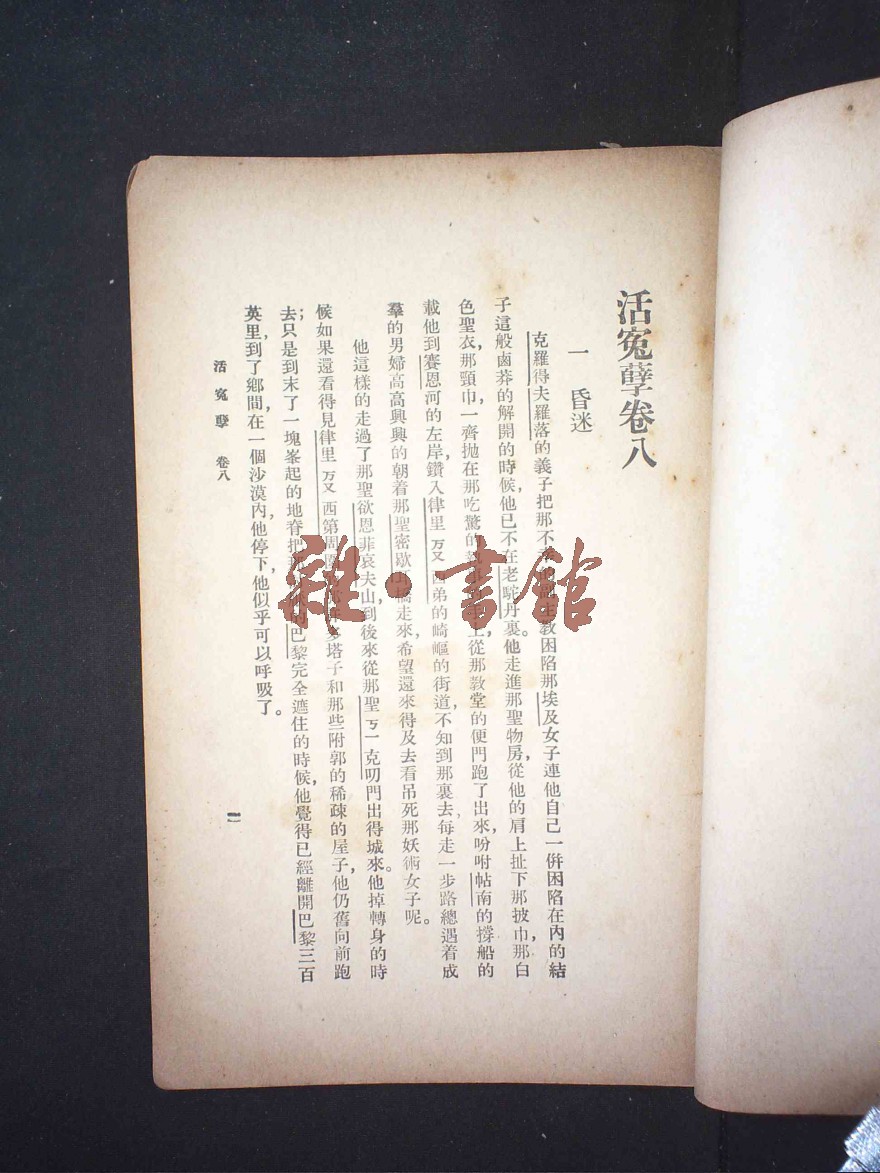 活冤孽卷八
一　昏迷
克羅得夫羅落的義子把那不幸的副主教困陷那埃及女子連他自己一併困陷在內的結
子這般鹵莽的解開的時候，他已不在老駝丹裏。他走進那聖物房，從他的肩上扯下那披巾，那白
色聖衣，那頸巾，一齊拋在那吃驚的手上，從那教堂的便門跑了出來，吩咐帖南的撐船的
載他到賽恩河的左岸，鑽入律里ㄞㄡ西弟的崎嶇的街道，不知到那裏去，每走一步路總遇着成
羣的男婦高高興興的朝着那聖密歇山橋走來，希望還來得及去看吊死那妖術女子呢。
他這樣的走過了那聖欲恩菲哀夫山，到後來從那聖ㄎ一克叨門出得城來。他掉轉身的時
候如果還看得見律里ㄞㄡ西第周圍塔子和那些附郭的稀疎的屋子，他仍舊向前跑
去；只是到末了一塊峯起的地脊把那的巴黎完全遮住的時候，他覺得已經離開巴黎三百
英里，到了鄉間，在一個沙漠內，他停下，他似乎可以呼吸了。
活冤孽　卷八
一
雜·書館